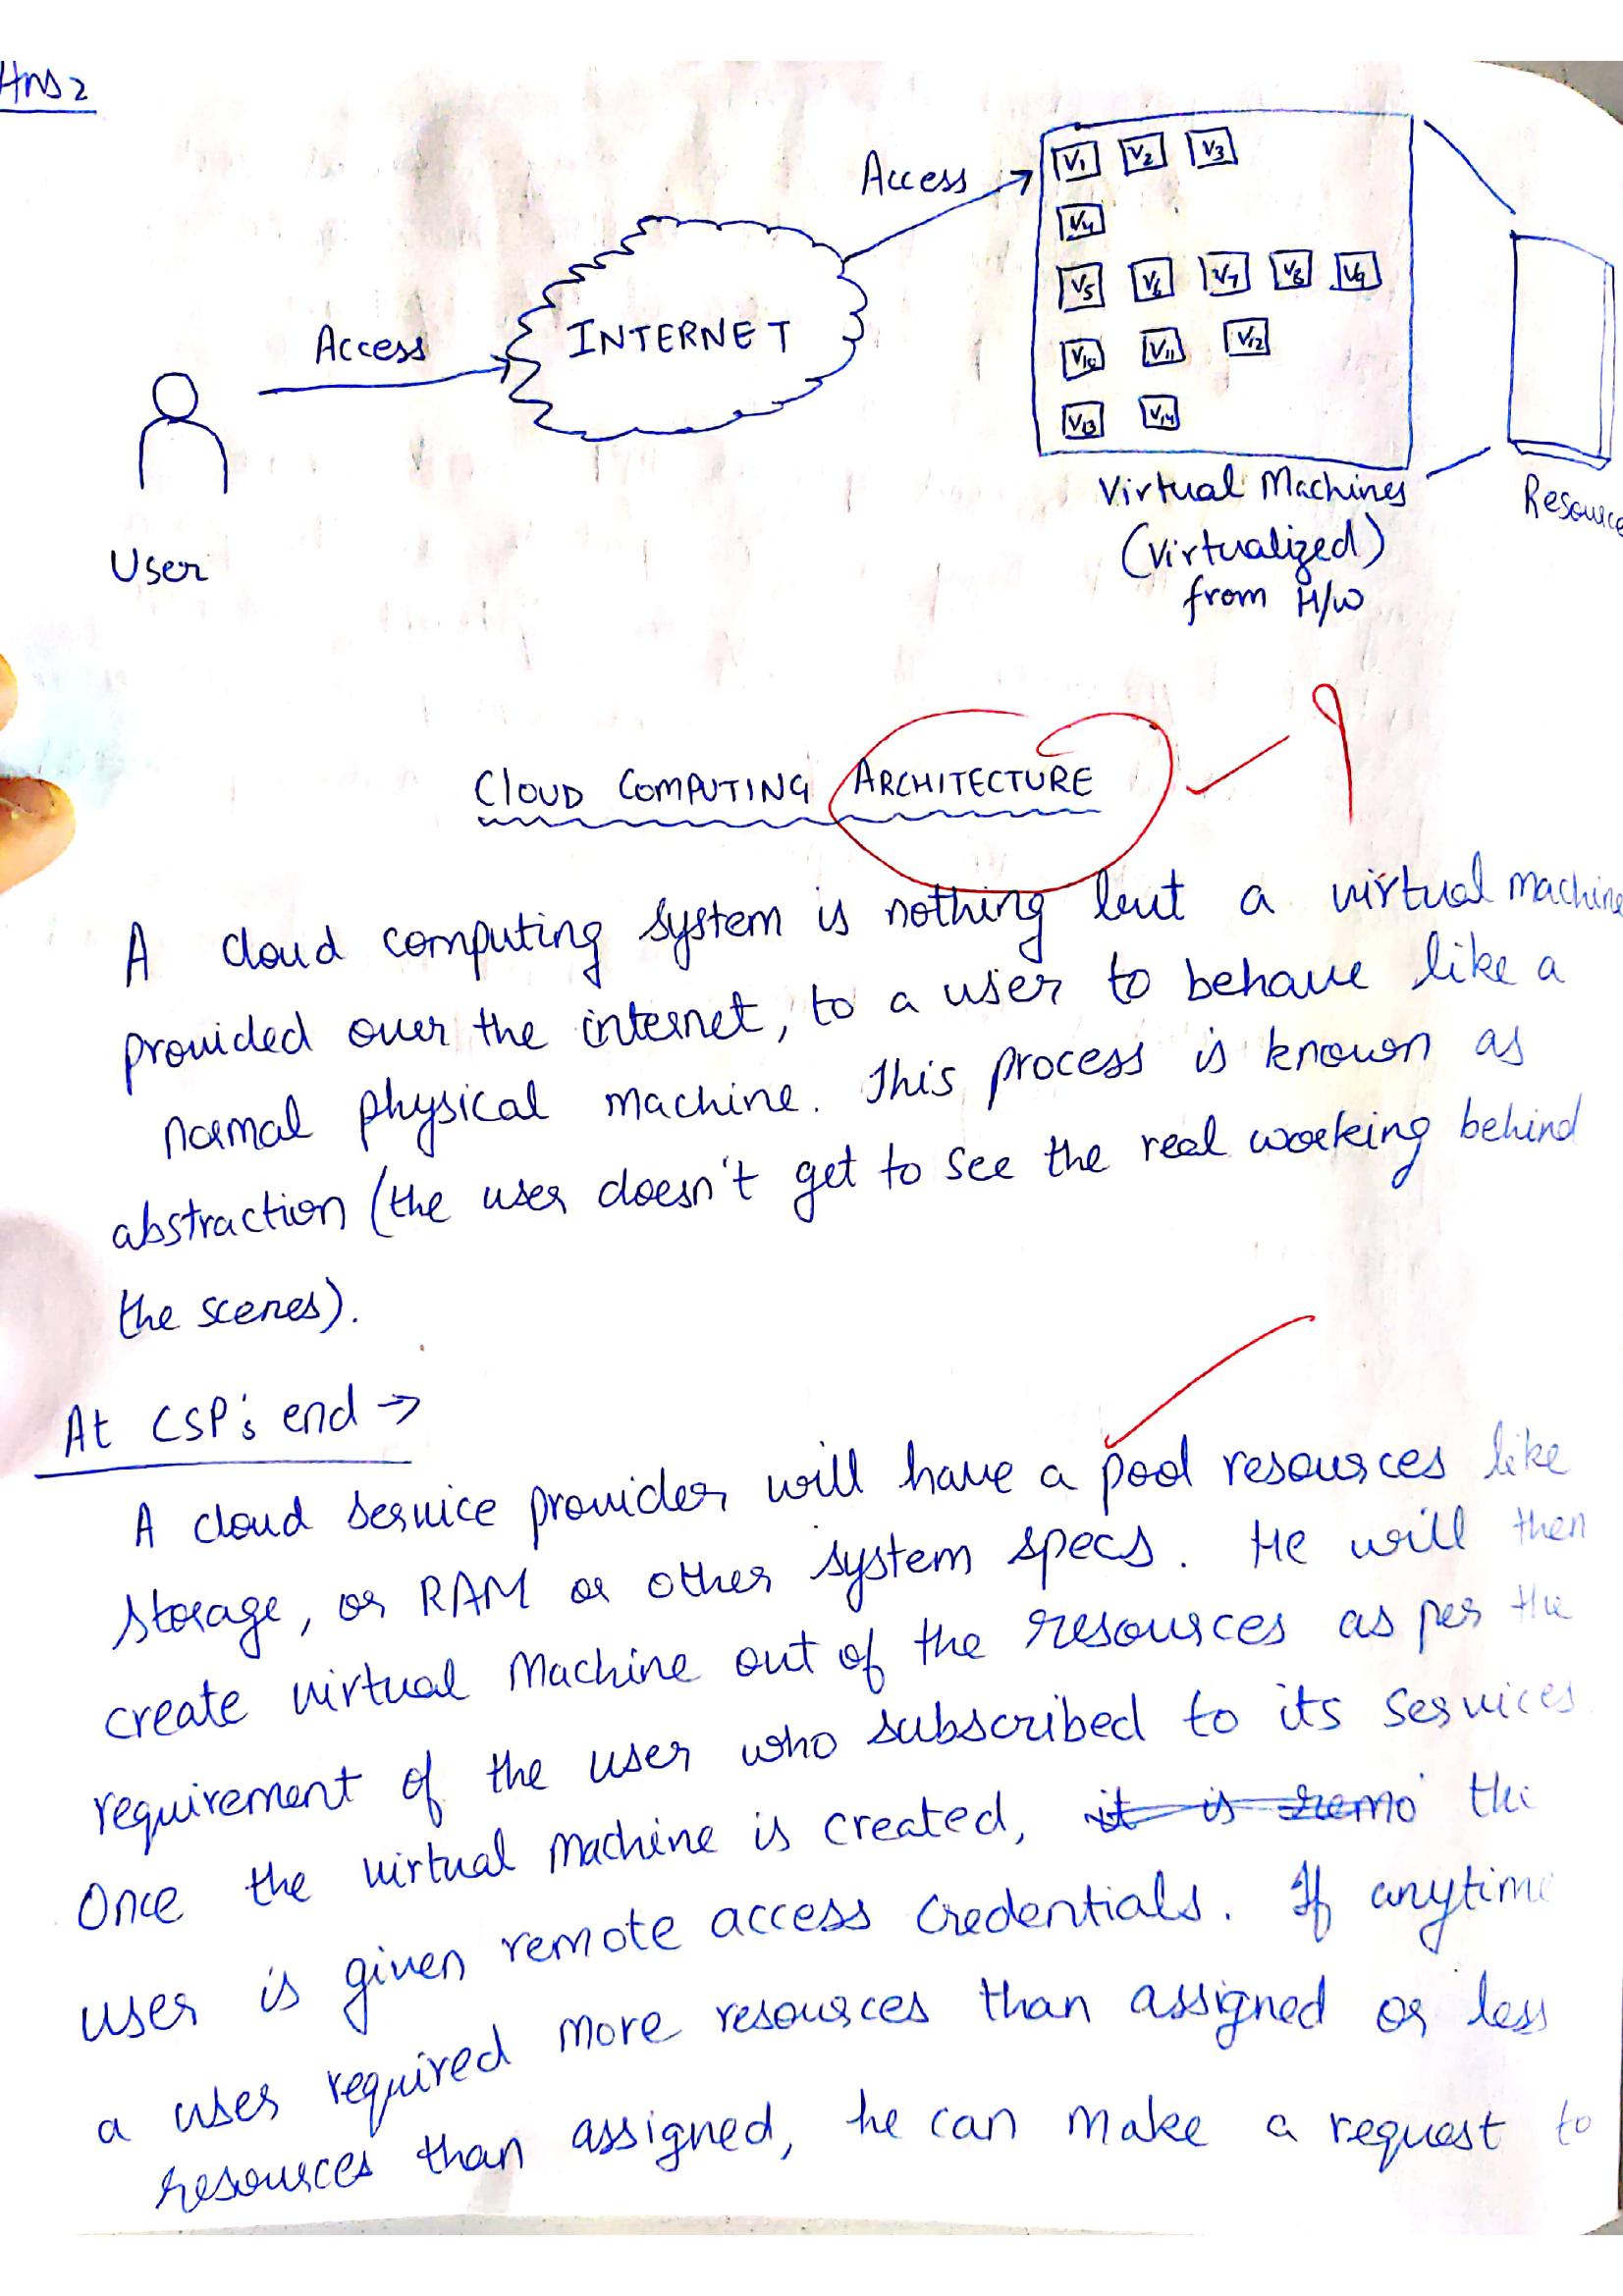 Ans 2
Access
V1 V2 V3
V4
V5 V6 V7 V8 V9
V10 V11 V12
V13 V14
Access
INTERNET
User
Virtual Machines
(Virtualized)
from H/W
Resource
CLOUD COMPUTING ARCHITECTURE
A cloud computing system is nothing but a virtual machine
provided over the internet, to a user to behave like a
normal physical machine. This process is known as
abstraction (the user doesn't get to see the real working behind
the scenes).
At CSP's end →
A cloud service provider will have a pool resources like
storage, or RAM or other system specs. He will then
create virtual Machine out of the resources as per the
requirement of the user who subscribed to its services
Once the virtual machine is created, it is remo the
user is given remote access credentials. If anytime
a user required more resources than assigned or less
resources than assigned, he can make a request to